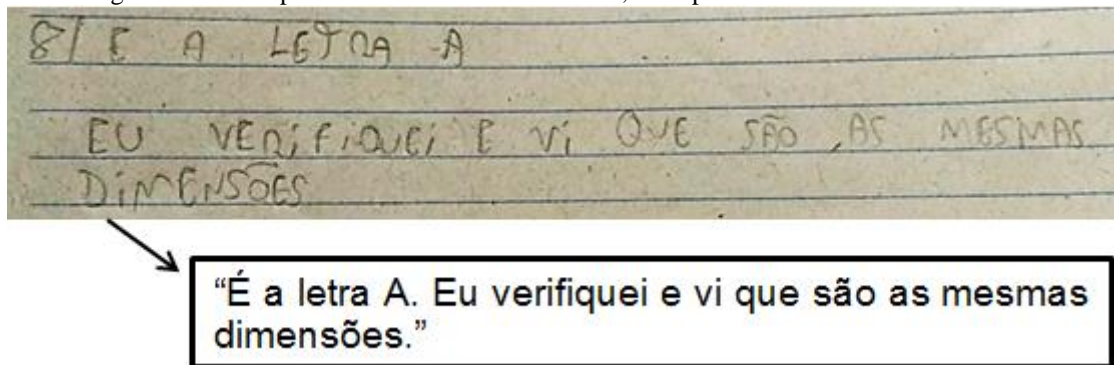 8/ E A LETRA A
EU VERIFIQUEI E VI QUE SÃO AS MESMAS
DIMENSÕES
“É a letra A. Eu verifiquei e vi que são as mesmas
dimensões.”